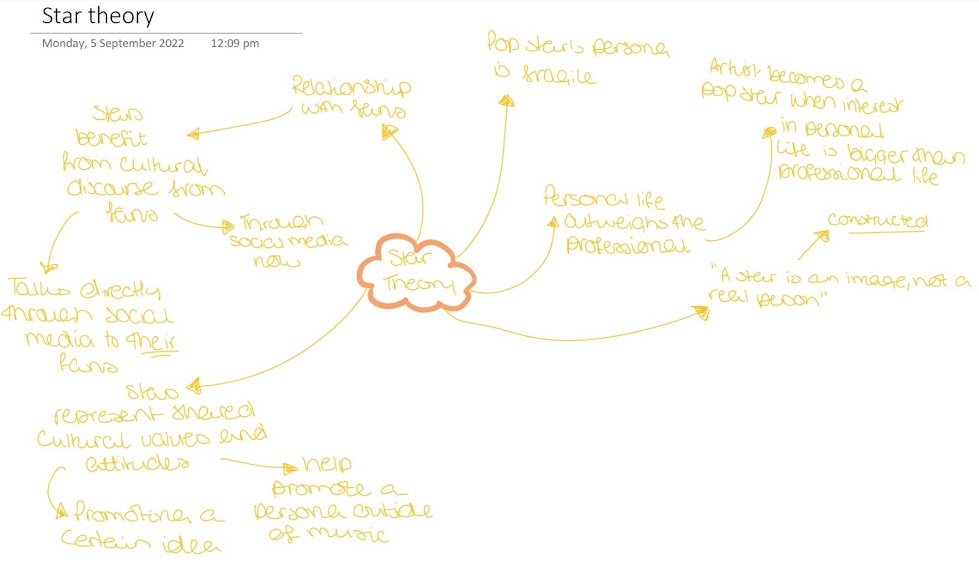 Star theory
Monday, 5 September 2022 12:09 pm
Pop star's persona
is fragile
Relationship
with fans
Artist becomes a
pop star when interest
in personal
life is bigger than
professional life
Stars
benefit
from cultural
discourse from
fans
Through
social media
now
Personal life
outweighs the
professional
constructed
Star
Theory
"A star is an image, not a
real person"
Talks directly
through social
media to their
fans
Stars
represent shared
cultural values and
attitudes
help
promote a
persona outside
of music
Promoting a
certain idea